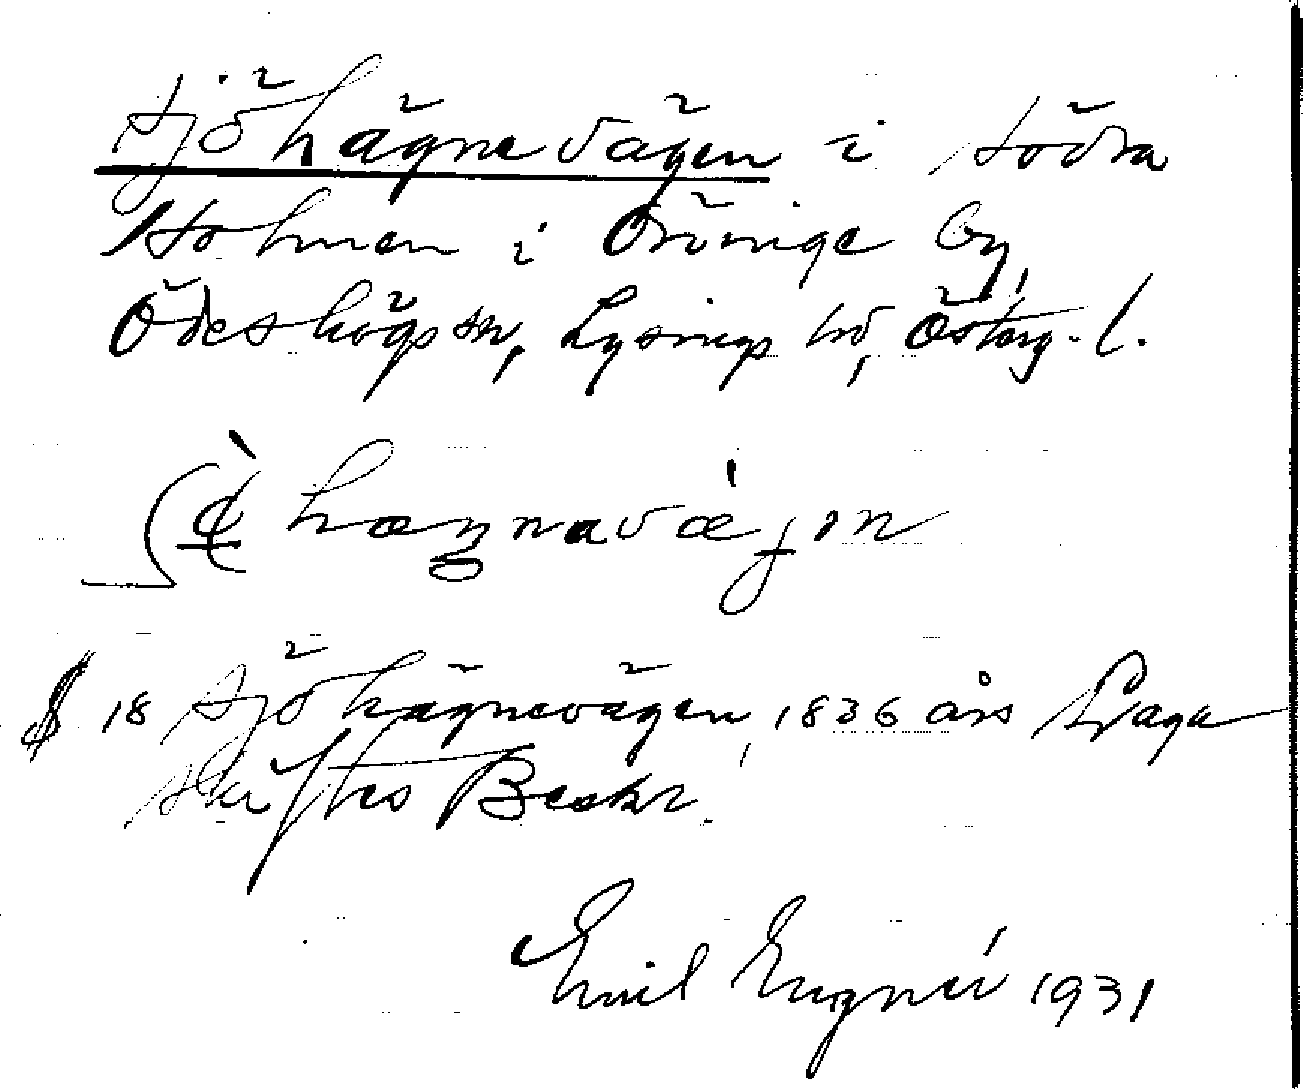 Sjöhägnevägen i södra
Holmen i Öninge by,
Ödeshögs sn, Lysings hd, Österg. l.
hægnavæjən
§ 18 Sjöhägnevägen, 1836 års Laga
skiftes Beskr.
Emil 1931